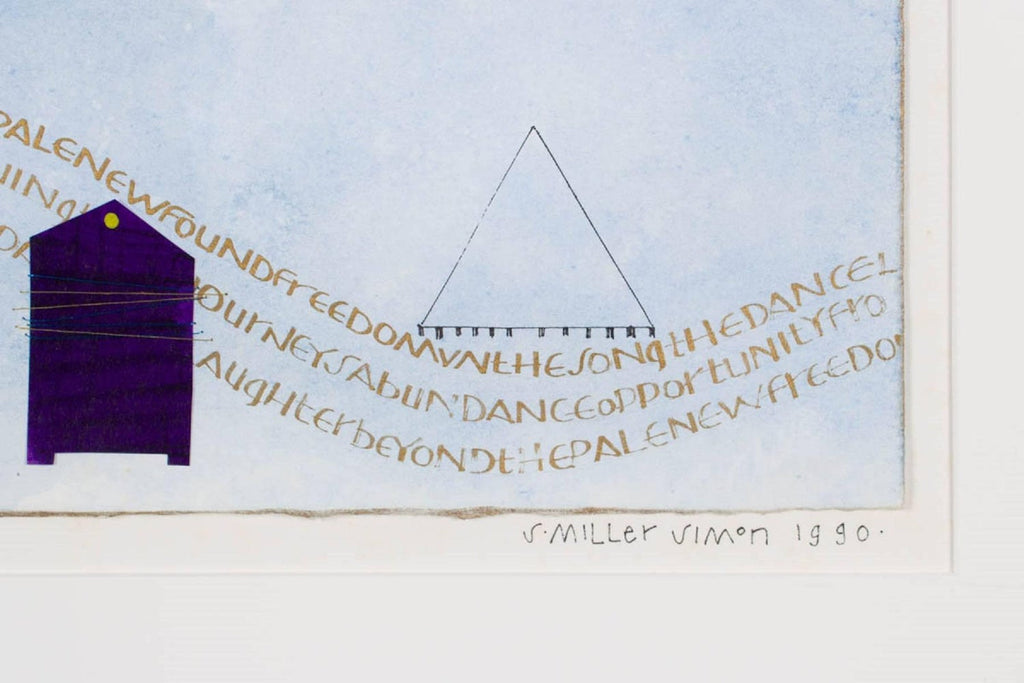 PALENEWFOUNDFREEDOMVNTHESONGTHEDANCEL
OURNEYSABUNDANCEOPPORTUNITYFRO
AUGHTERBEYONDTHEPALENEWFREEDO
S. MILLER SIMON 1990.